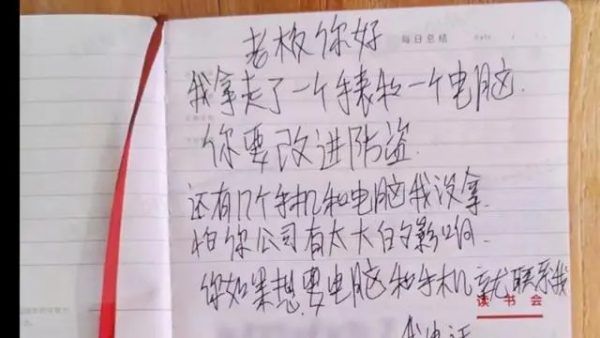 老板你好 每日总结 Date
我拿走了一个手表和一个电脑.
你要改进防盗
还有几个手机和电脑我没拿.
怕你公司有太大的影响.
你如果想要电脑和手机就联系我
读书会